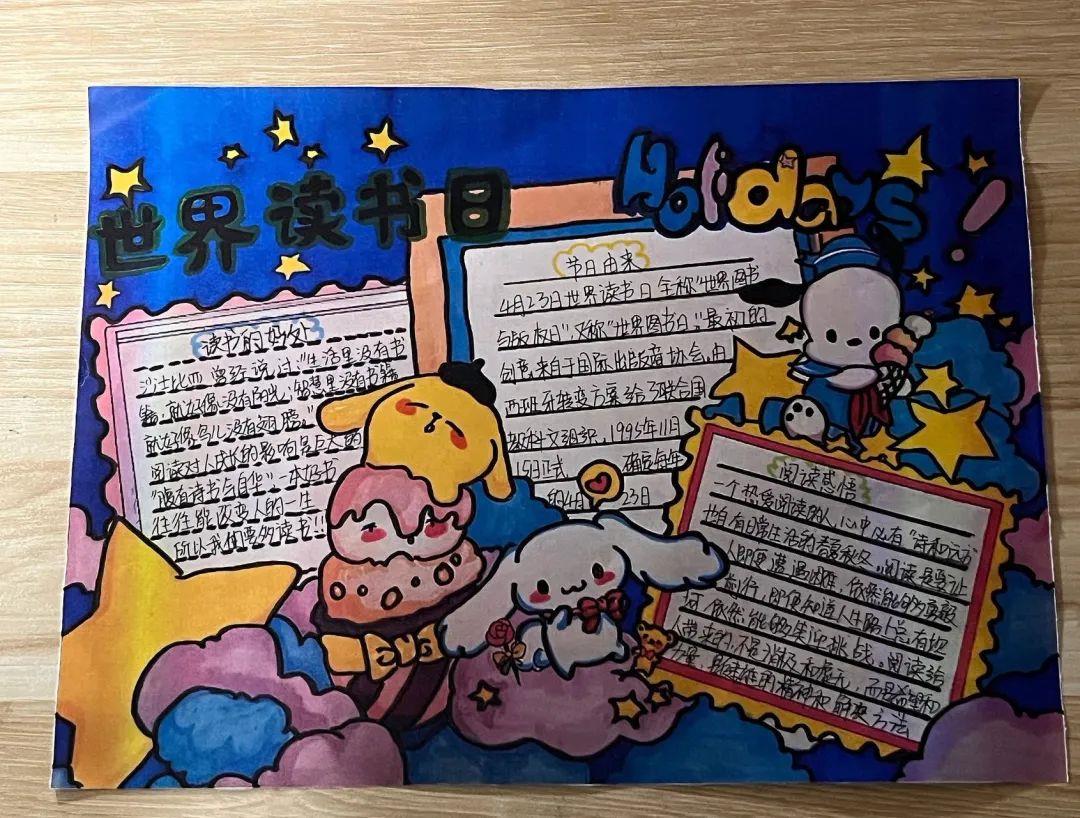 世界读书日
Holidays
读书的好处
沙士比亚曾经说过:"生活里没有书
籍,就好像没有阳光;智慧里没有书籍
就好像鸟儿没有翅膀。"
阅读对人成长的影响是巨大的
"腹有诗书气自华"一本好书
往往能改变人的一生
所以我们要多读书!!
节日由来
4月23日世界读书日全称"世界图书
与版权日",又称"世界图书日",最初的
创意来自于国际出版商协会,由
西班牙转变方案给了联合国
教科文组织,1995年11月
15日正式 确定每年
的4月 23日
阅读感悟
一个热爱阅读的人,心中必有"诗和远方"
也自有日常生活的春夏秋冬。阅读是要让
人即便遭遇困难,依然能够勇敢
前行,即便知道人生路上总有坎
坷依然能够笑迎挑战。阅读给
人带来的不是消极和虚无,而是希望和
力量,是建雄的精神和解决方法